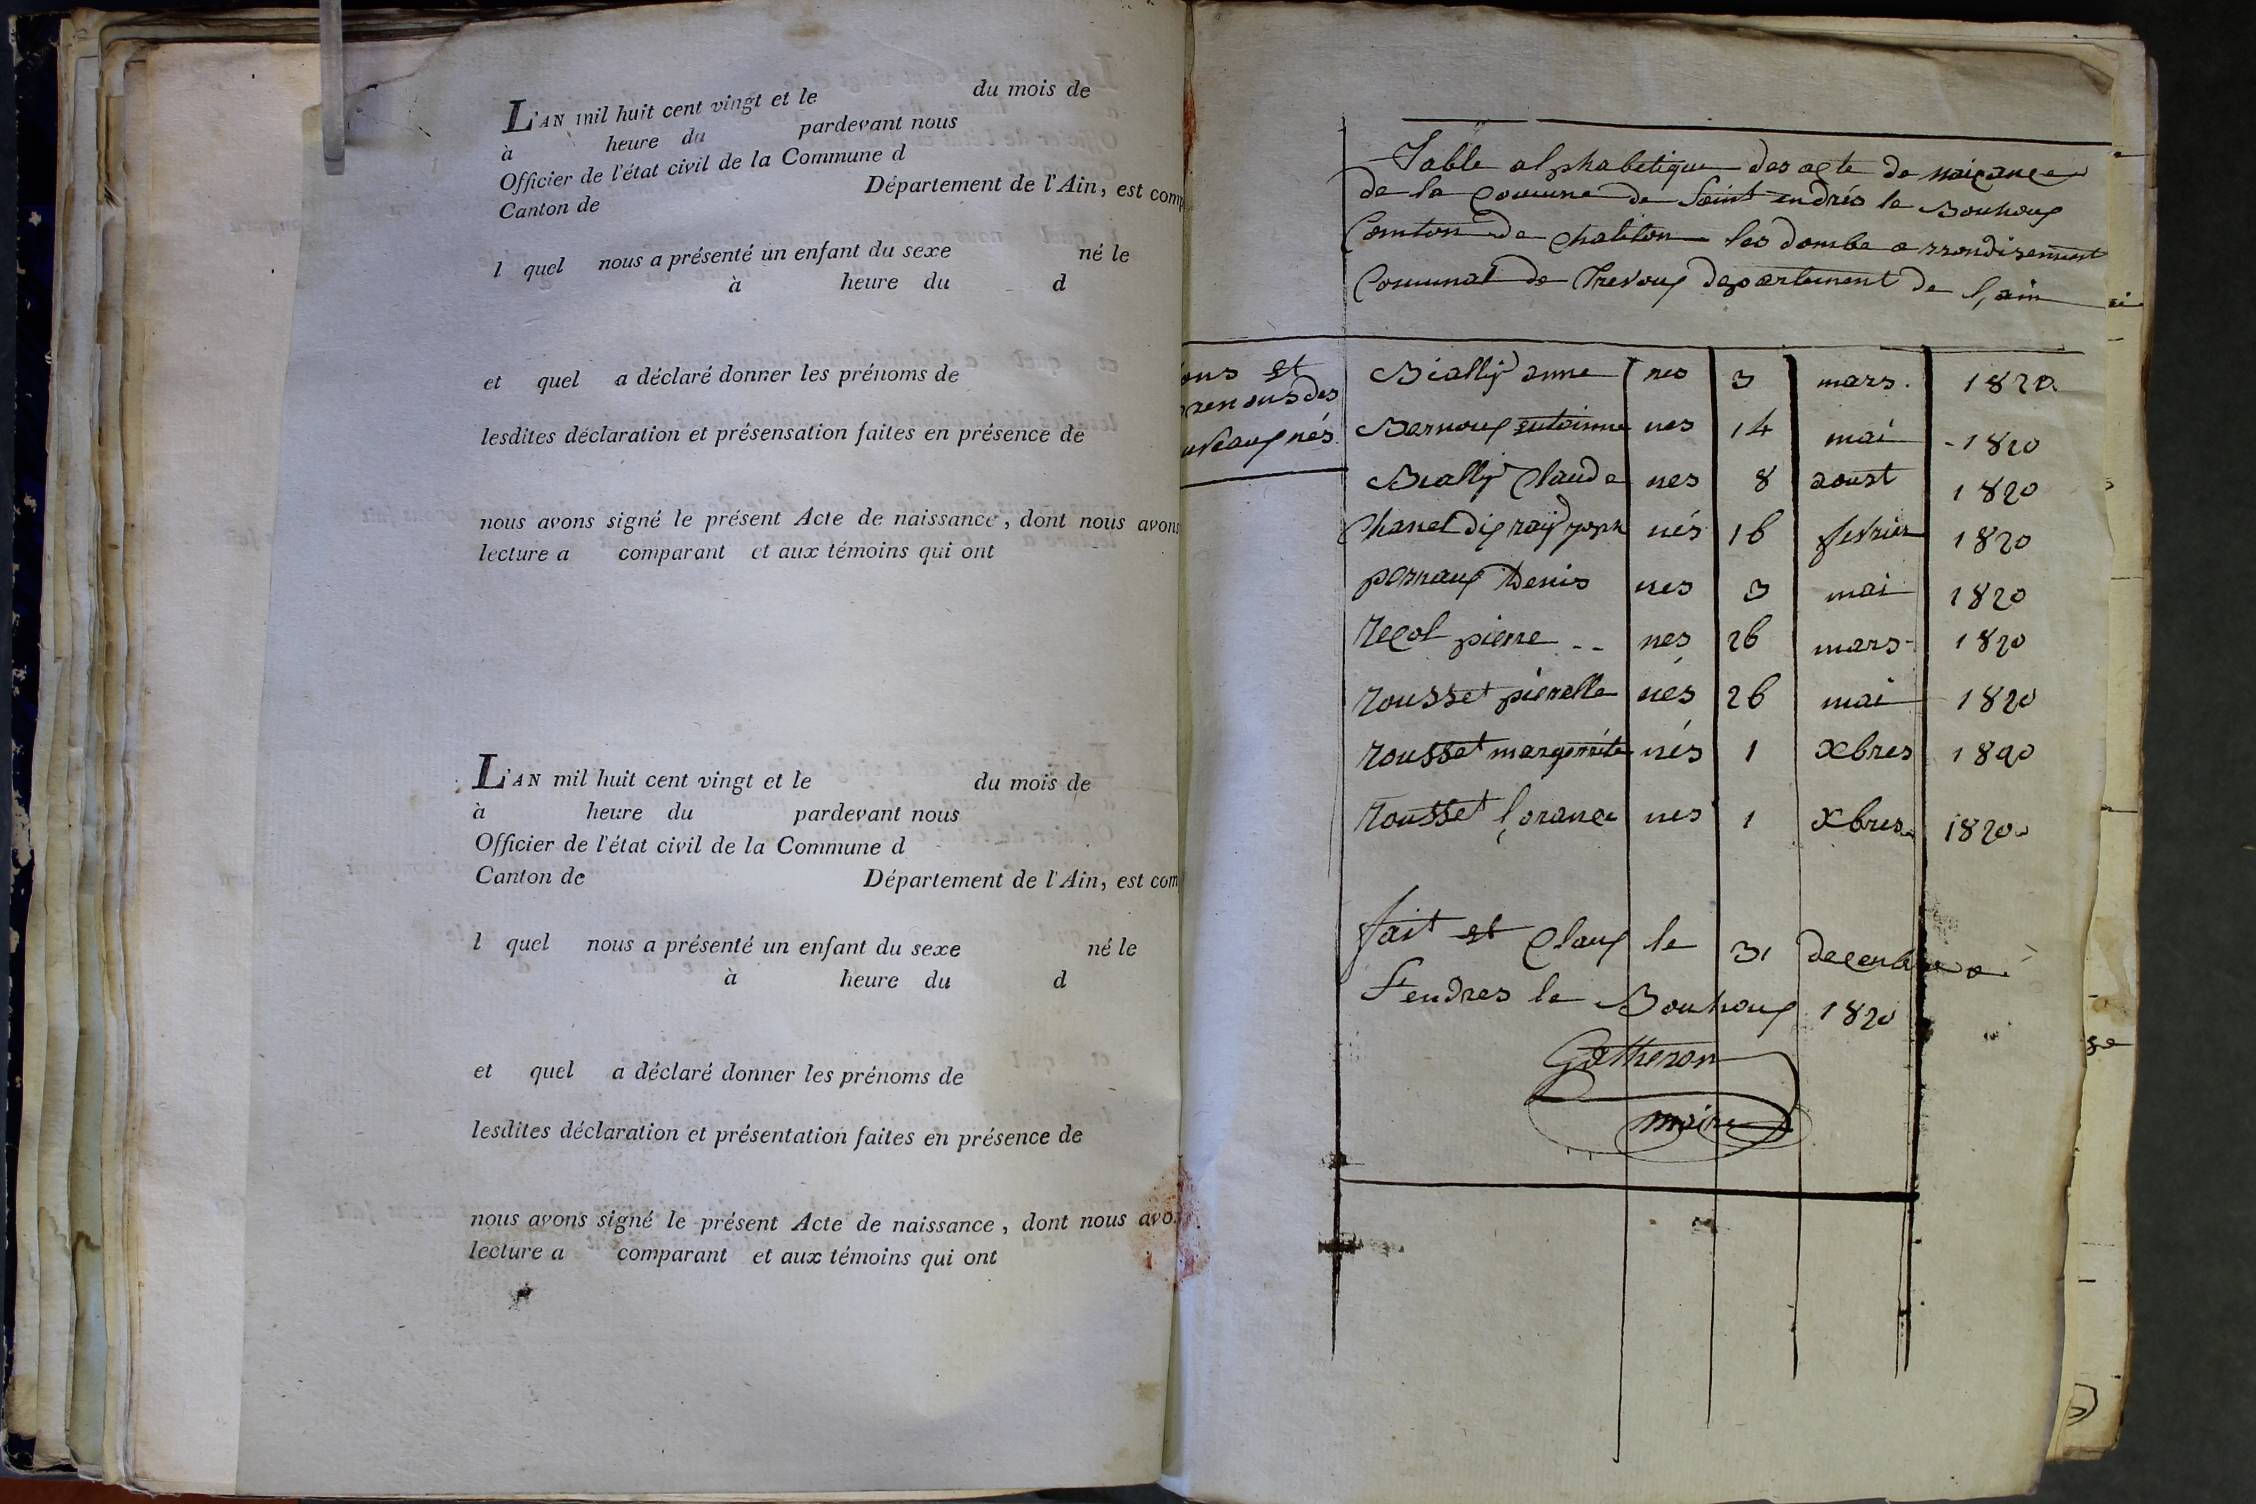 L'AN mil huit cent vingt et le du mois de
à heure du pardevant nous
Officier de l'état civil de la Commune d
Canton de Département de l'Ain, est comp
l quel nous a présenté un enfant du sexe né le
à heure du d
et quel a déclaré donner les prénoms de
lesdites déclaration et présensation faites en présence de
nous avons signé le présent Acte de naissance, dont nous avons
lecture a comparant et aux témoins qui ont
L'AN mil huit cent vingt et le du mois de
à heure du pardevant nous
Officier de l'état civil de la Commune d
Canton de Département de l'Ain, est com
l quel nous a présenté un enfant du sexe né le
à heure du d
et quel a déclaré donner les prénoms de
lesdites déclaration et présentation faites en présence de
nous avons signé le présent Acte de naissance, dont nous avo
lecture a comparant et aux témoins qui ont
Table alphabetique des acte de naiçance
de la Commune de Saint endrés le Bouhoux
Comton de chatiton les dombe arrondisement
Communal de Trevoux departement de l,ain
oms et
prenoms des
uveaux nés
Bially anne nes 3 mars. 1820
Bernoux entoinne nes 14 mai - 1820
Bially Claude nes 8 aoust 1820
Chanel dix ray joseph nés 16 fevrier 1820
pernaux Denis nes 3 mai 1820
recol pierre -- nes 26 mars - 1820
rousset pierelle nés 26 mai 1820
rousset margerite nés 1 xbres 1820
rousset lorance nes 1 xbres 1820
fait et Claux le 31 decembre a
St endres le Bouhoux 1820
Gatheron
maire